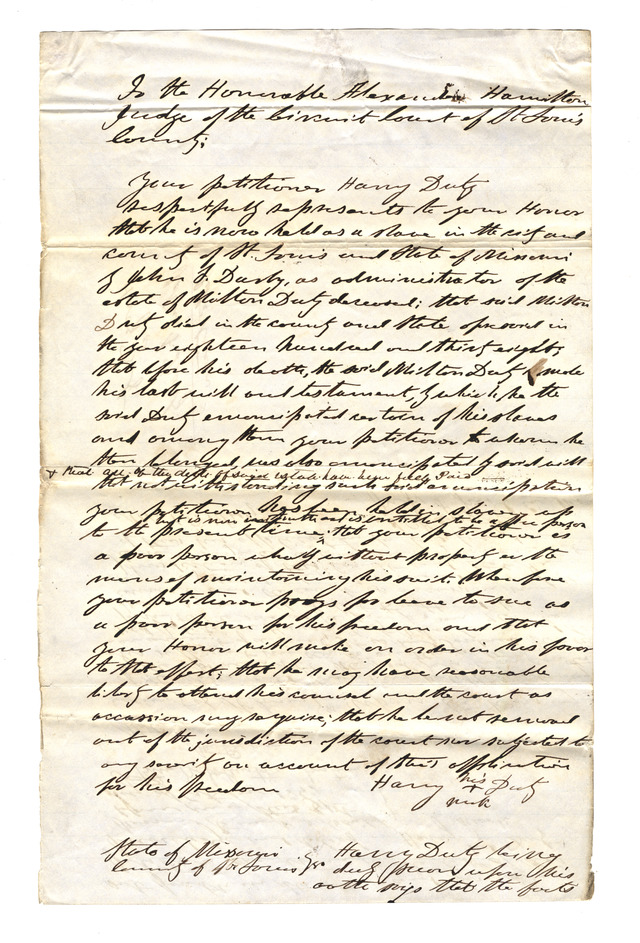 To the Honorable Alexander Hamilton
Judge of the Circuit Court of St Louis
County;
Your petitioner Harry Duty
respectfully represents to your Honor
that he is now held as a slave in the city and
county of St. Louis and State of Missouri
by John F. Darby, as administrator of the
estate of Milton Duty deceased; that said Milton
Duty died in the county and State aforesaid in
the year eighteen hundred and thirty eight;
that before his death, the said Milton Duty made
his last will and testament, by which he the
said Duty emancipated certain of his slaves
and among them your petitioner to whom he
then belonged, was also emancipated by said will
+ that all of the debts of said estate have been fully paid
that notwithstanding such said emancipation
your petitioner has been held in slavery up
but is now and is entitled to be a free person
to the present time, that your petitioner is
a poor person wholly without property or the
means of maintaining his suit. Wherefore
your petitioner prays for leave to sue as
a poor person for his freedom and that
your Honor will make an order in his favor
to that effect; that he may have reasonable
liberty to attend his counsel and the court as
occassion may require; that he be not removed
out of the jurisdiction of the court nor subjected to
any severity on account of this application
for his freedom Harry his + Duty
mark
State of Missouri Harry Duty being
County of St. Louis } ss duly sworn upon his
oath says that the facts